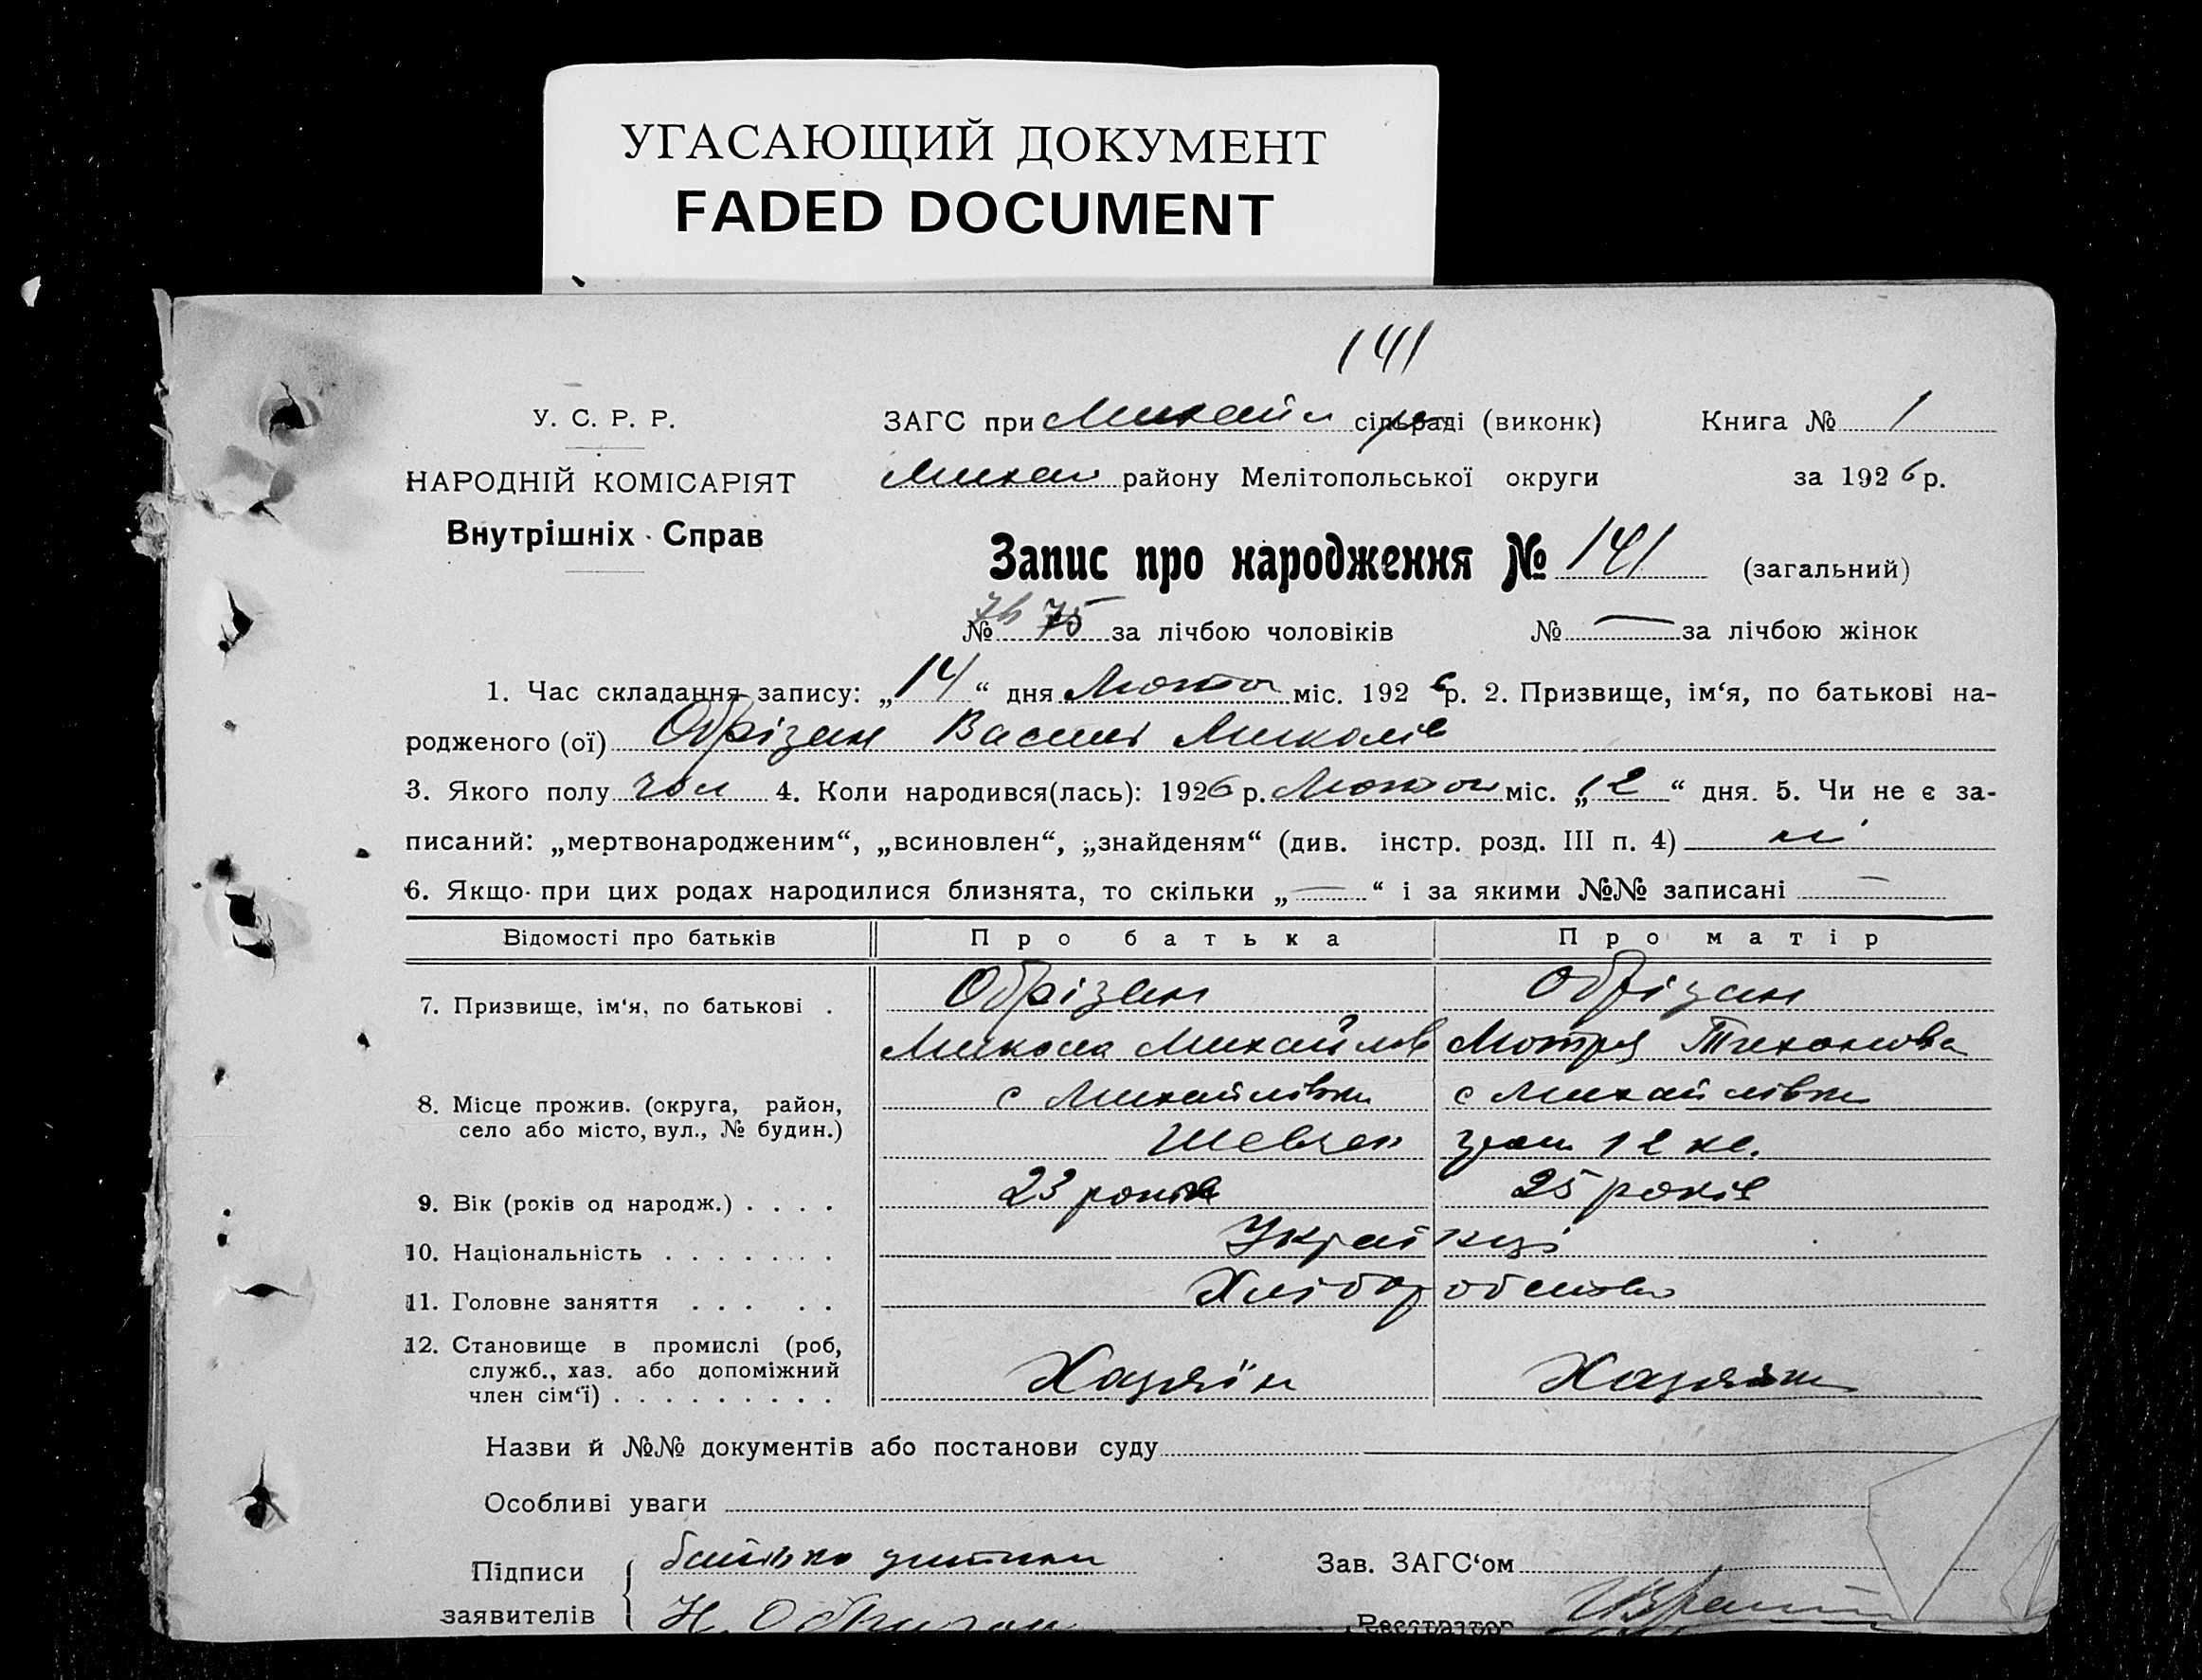 УГАСАЮЩИЙ ДОКУМЕНТ
FADED DOCUMENT
141
У. С. Р. Р.
НАРОДНІЙ КОМІСАРІЯТ
Внутрішніх Справ
ЗАГС при Михайл сільраді (виконк) Книга № 1
Михай району Мелітопольської округи за 1926 р.
Запис про народження № 141 (загальний)
№ 76 75 за лічбою чоловіків № — за лічбою жінок
1. Час складання запису: „14“ дня Лютого міс. 1926 р. 2. Призвище, ім‘я, по батькові на-
родженого (ої) Обрізан Василь Миколів
3. Якого полу чол 4. Коли народився(лась): 1926 р. Лютого міс. „12“ дня. 5. Чи не є за-
писаний: „мертвонародженим“, „всиновлен“, „знайденям“ (див. інстр. розд. III п. 4) ні
6. Якщо при цих родах народилися близнята, то скільки „—“ і за якими №№ записані —
Відомості про батьків Про батька Про матір
7. Призвище, ім‘я, по батькові . Обрізан Обрізан
Микола Михайлов Мотря Тихонова
8. Місце прожив. (округа, район, село або місто, вул., № будин.) с Михайлівки с Михайлівки
Шевчен 12 кв.
9. Вік (років од народж.) . . . . 23 років 25 років
10. Національність . . . . . . . Українці
11. Головне заняття . . . . . Хлібороб
12. Становище в промислі (роб, служб., хаз. або допоміжний член сім‘ї) . . . . . . . . . Хазяїн Хазяйк
Назви й №№ документів або постанови суду
Особливі уваги
Підписи батько дитини Зав. ЗАГС‘ом
заявителів Н. Обризан Реєстратор